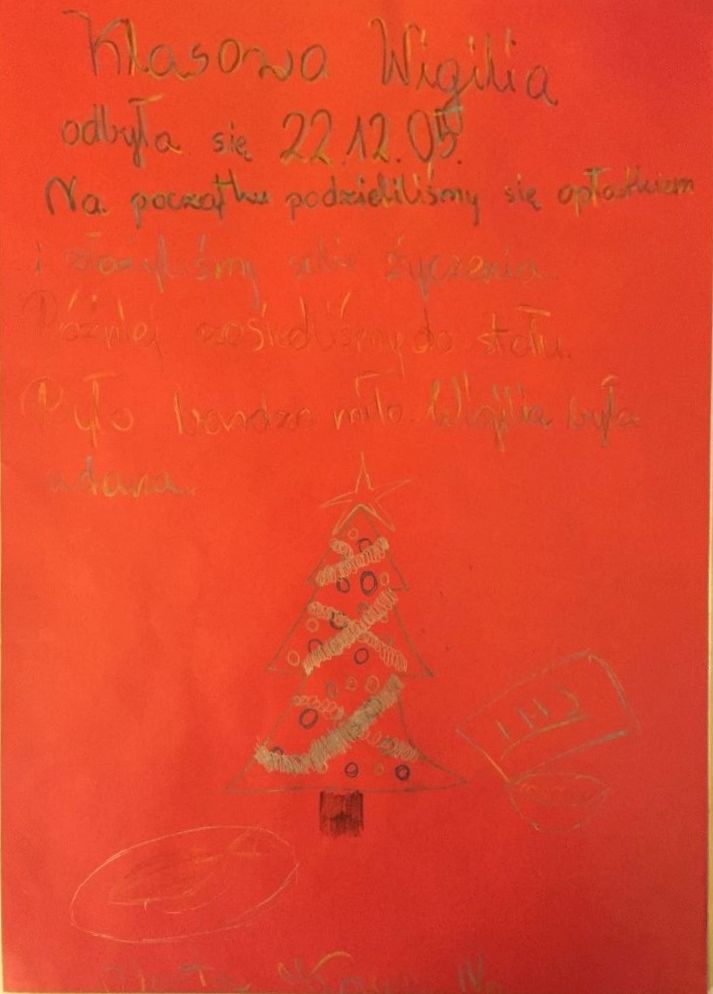 Klasowa Wigilia
odbyła się 22.12.05.
Na początku podzieliliśmy się opłatkiem
i złożyliśmy sobie życzenia.
Później zasiedliśmy do stołu.
Było bardzo miło. Wigilia była
udana.
IHS